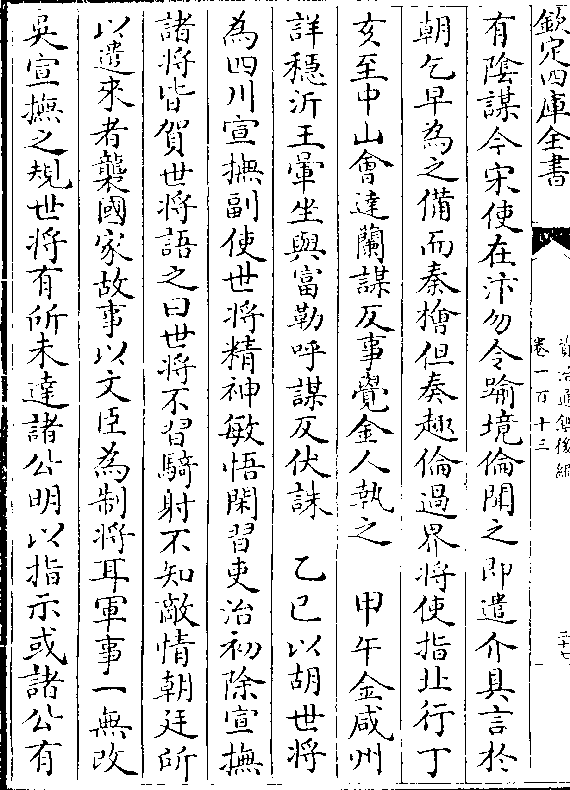 欽定四庫全書
資治通鑑後編
卷一百十三
二十七
有陰謀今宋使在汴勿令踰境倫聞之即遣介具言於
朝乞早為之備而秦檜但奏趣倫過界將使指北行丁
亥至中山會達蘭謀反事覺金人執之　甲午金咸州
詳穩沂王暈坐與富勒呼謀反伏誅　乙巳以胡世将
為四川宣撫副使世将精神敏悟閑習吏治初除宣撫
諸将皆賀世将語之曰世将不習騎射不知敵情朝廷所
以遣來者襲國家故事以文臣為制将耳軍事一無改
吳宣撫之規世将有所未達諸公明以指示或諸公有